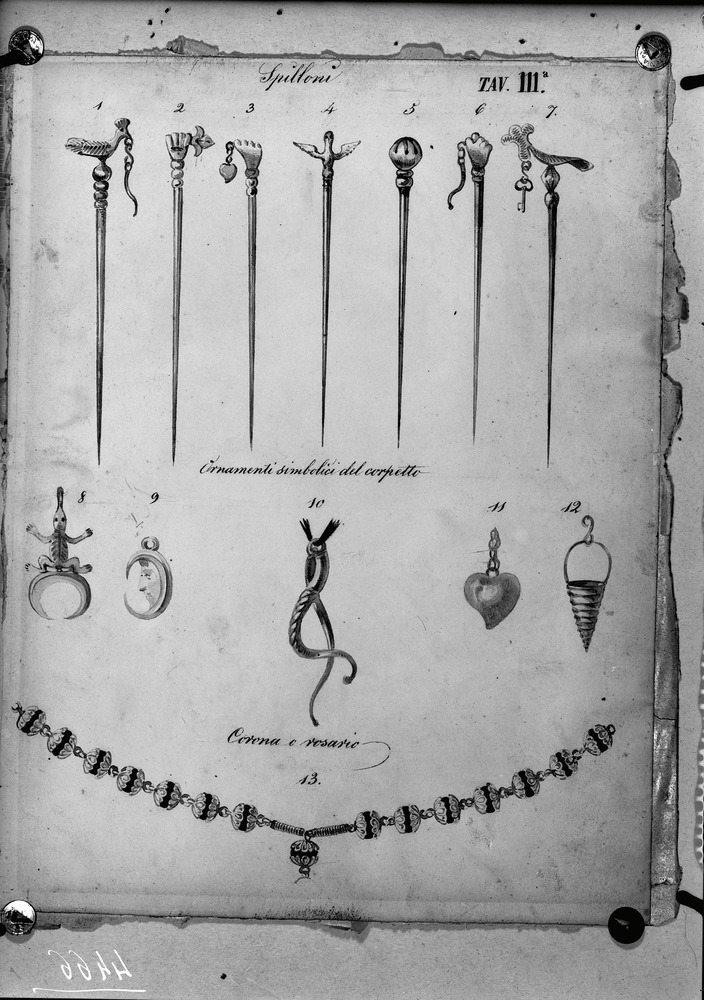 Spilloni
TAV. III.ª
1 2 3 4 5 6 7.
Ornamenti simbolici del corpetto
8 9 10 11 12
Corona o rosario
13.
4466